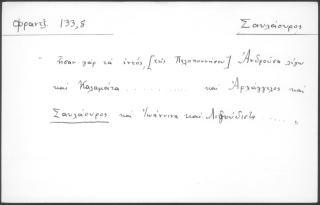 Φραντζ. 133,8
Σαυλάουρος
" ἦσαν γὰρ τὰ ἐντός, [τῆς Πελοποννήσου] Ἀνδροῦσα
καὶ Καλαμάτα ........... καὶ Ἀρχάγγελος καὶ
Σαυλάουρος καὶ Ἰωάννινα καὶ ..... "